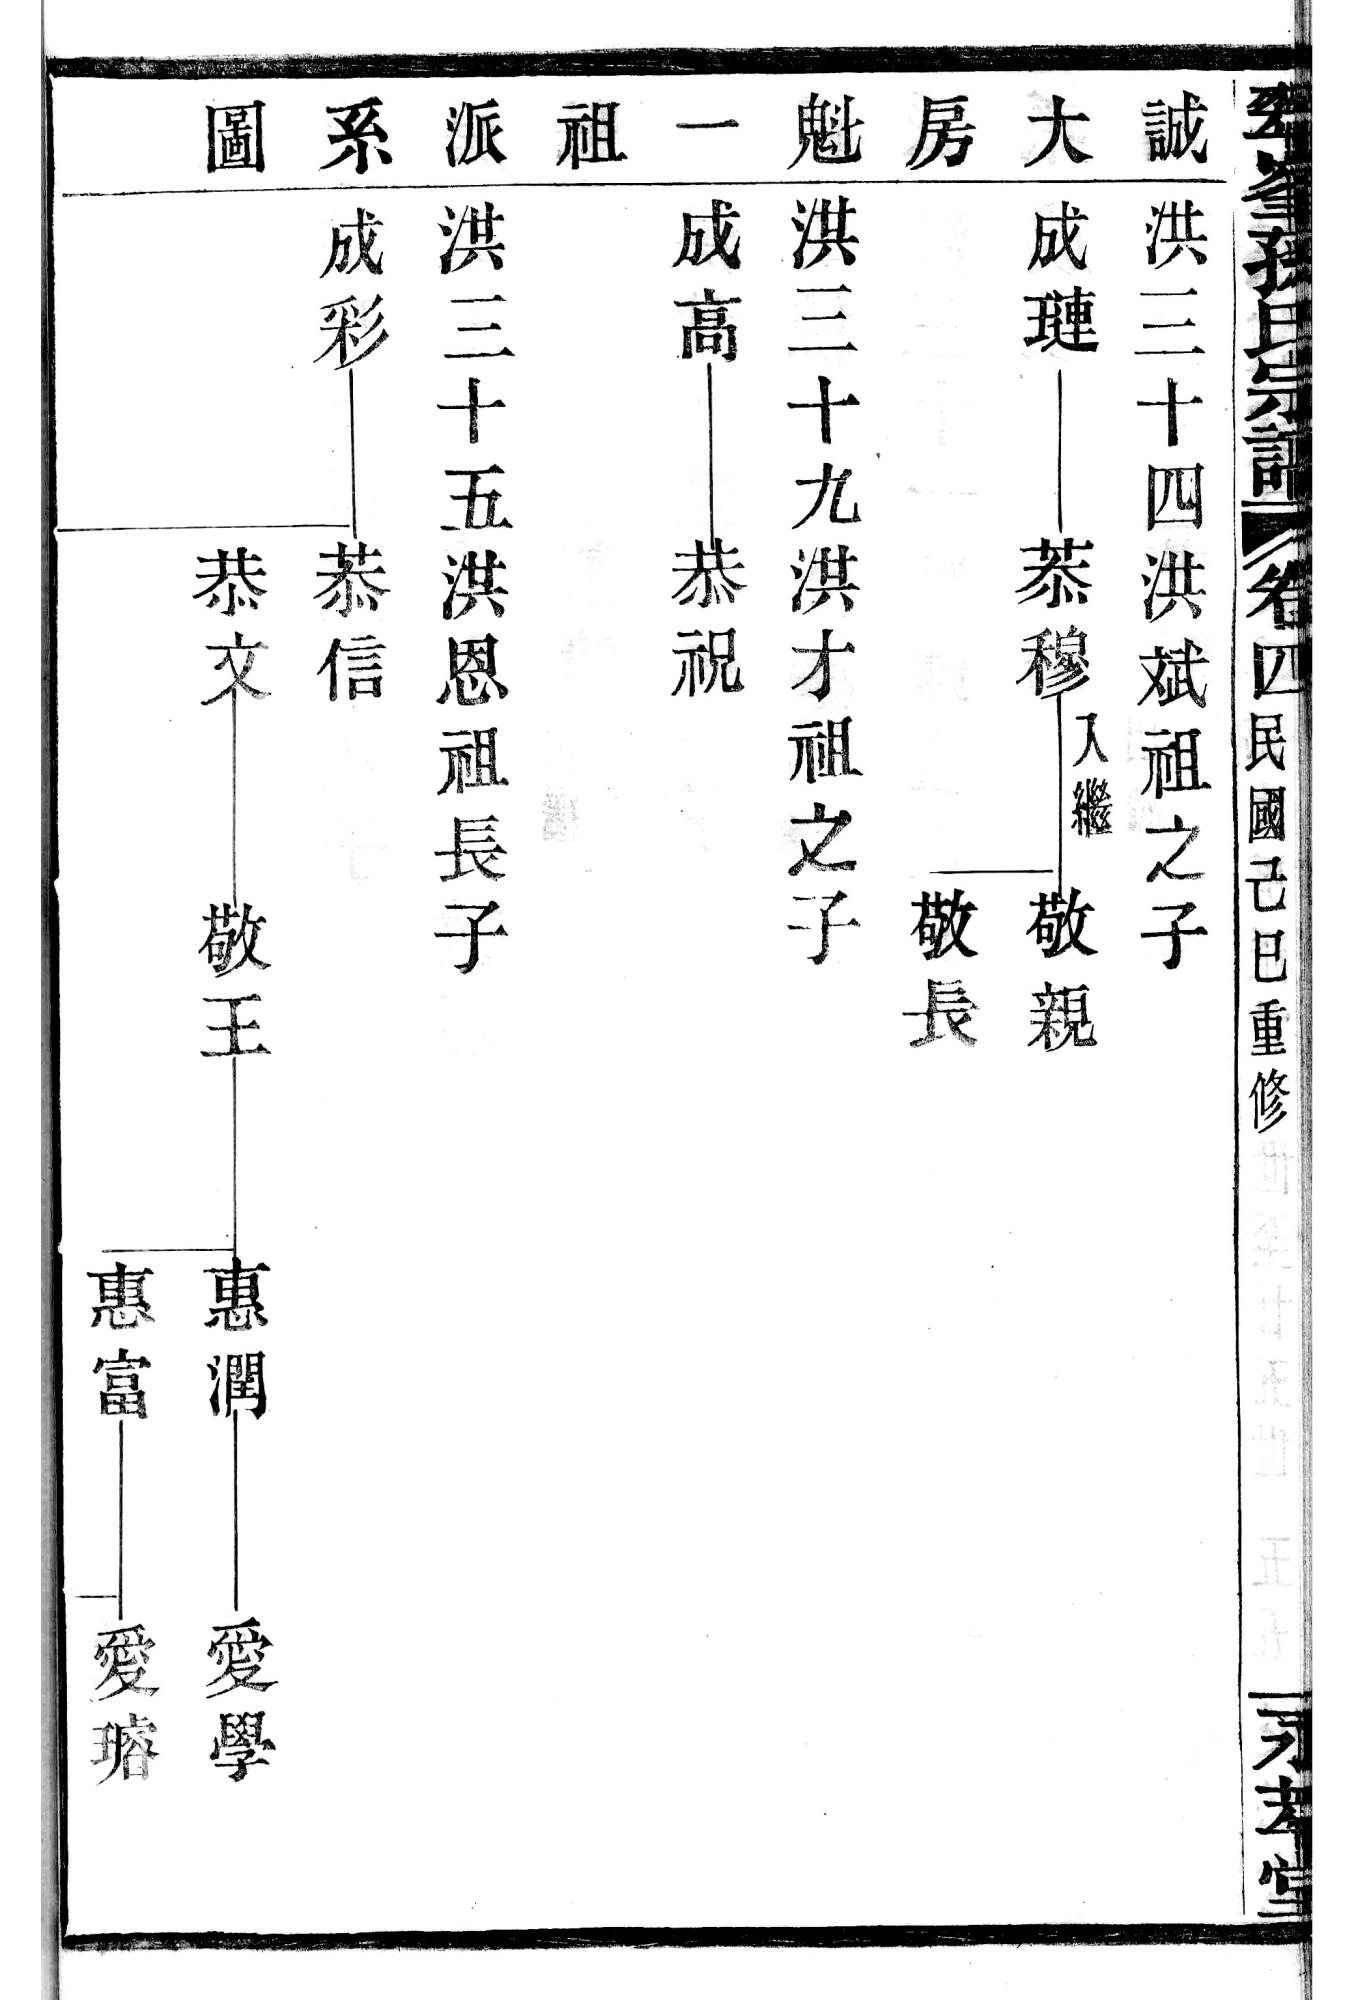 孫氏宗譜
卷四
民國己巳重修
堂
誠大房魁一祖派系圖
洪三十四洪斌祖之子
成璉
恭穆
入繼
敬親
敬長
洪三十九洪才祖之子
成高
恭祝
洪三十五洪恩祖長子
成彩
恭信
恭文
敬王
惠潤
愛學
惠富
愛璿